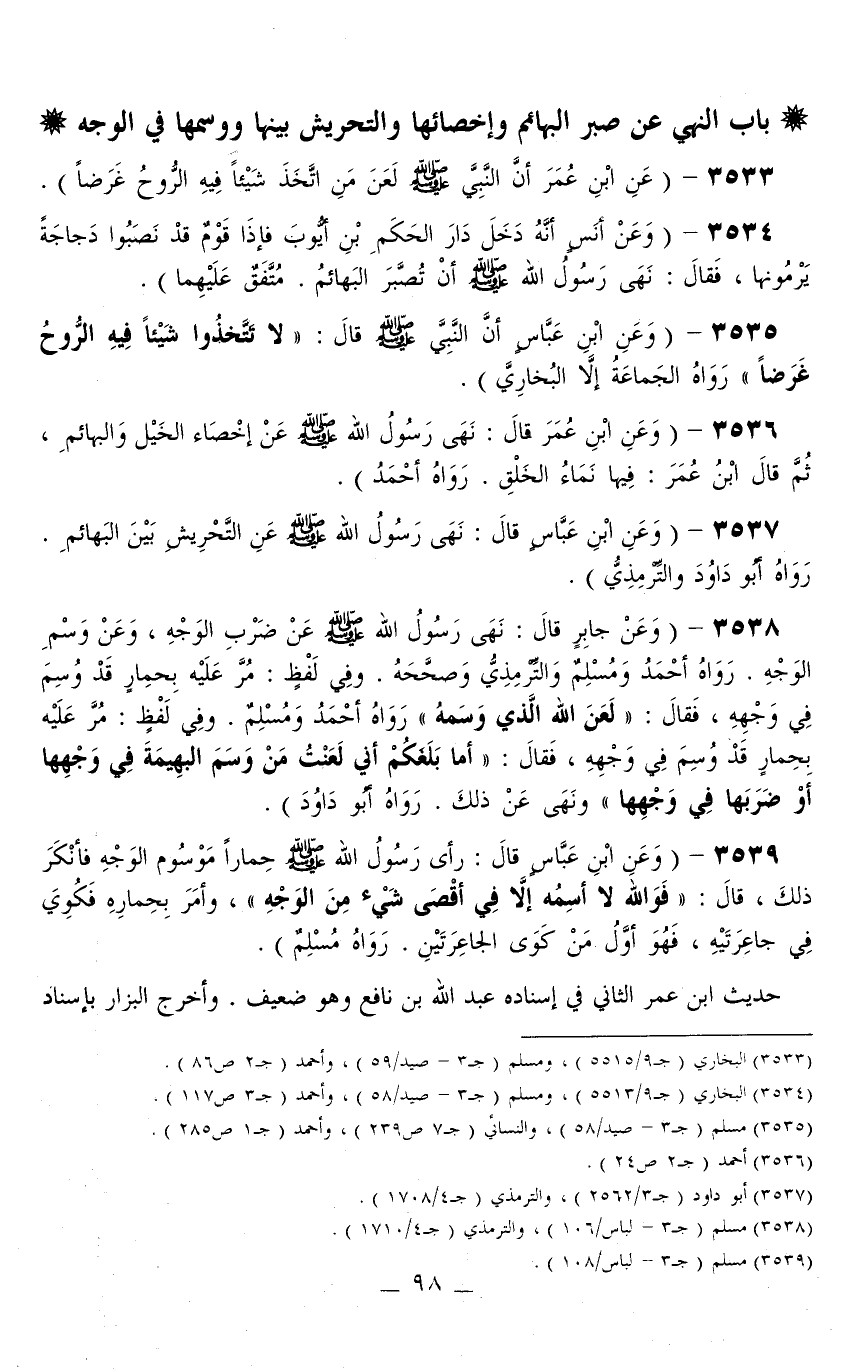 ✷ باب النهي عن صبر البهائم وإخصائها والتحريش بينها ووسمها في الوجه ✷
٣٥٣٣ – ( عَنِ ابْنِ عُمَرَ أنَّ النَّبِيَّ ﷺ لَعَنَ مَنِ اتَّخَذَ شَيْئاً فِيهِ الرُّوحُ غَرَضاً ) .
٣٥٣٤ – ( وَعَنْ أنَسٍ أنَّهُ دَخَلَ دَارَ الحَكَمِ بْنِ أيُّوبَ فإذَا قَوْمٌ قدْ نَصَبُوا دَجاجَةً
يَرْمُونها ، فَقالَ : نَهَى رَسُولُ الله ﷺ أنْ تُصَبَّرَ البَهائمُ . مُتَّفَقٌ عَلَيْهِما ) .
٣٥٣٥ – ( وَعَنِ ابْنِ عَبَّاسٍ أنَّ النَّبِيَّ ﷺ قالَ : « لا تَتَّخذُوا شَيْئاً فِيهِ الرُّوحُ
غَرَضاً » رَوَاهُ الجَماعَةُ إلَّا البُخارِيَّ ) .
٣٥٣٦ – ( وَعَنِ ابْنِ عُمَرَ قالَ : نَهَى رَسُولُ الله ﷺ عَنْ إخْصَاء الخَيْل وَالبهائمِ ،
ثُمَّ قالَ ابْنُ عُمَرَ : فِيها نَمَاءُ الخَلْقِ . رَوَاهُ أحْمَدُ ) .
٣٥٣٧ – ( وَعَنِ ابْنِ عَبَّاسٍ قالَ : نَهَى رَسُولُ الله ﷺ عَنِ التَّحْرِيشِ بَيْنَ البَهائمِ .
رَوَاهُ أبُو دَاوُدَ والتِّرْمِذِيُّ ) .
٣٥٣٨ – ( وَعَنْ جابِرٍ قالَ : نَهَى رَسُولُ الله ﷺ عَنْ ضَرْبِ الوَجْهِ ، وَعَنْ وَسْمِ
الوَجْهِ . رَوَاهُ أحْمَدُ وَمُسْلِمٌ وَالتِّرْمِذِيُّ وَصحَّحَهُ . وفِي لَفْظٍ : مُرَّ عَلَيْه بِحمِارٍ قَدْ وُسِمَ
فِي وَجْهِهِ ، فَقالَ : « لَعَنَ الله الَّذي وَسَمهُ » رَوَاهُ أحْمَدُ وَمُسْلِمٌ . وفِي لَفْظٍ : مُرَّ عَلَيْه
بِحمِارٍ قَدْ وُسِمَ فِي وَجْهِهِ ، فَقالَ : « أما بَلَغَكُمْ أني لَعَنْتُ مَنْ وَسَمَ البهِيمَةَ فِي وَجْهِها
أوْ ضَرَبَها فِي وَجْهِها » ونَهَى عَنْ ذلكَ . رَوَاهُ أبُو دَاوُدَ ) .
٣٥٣٩ – ( وَعَنِ ابْنِ عَبَّاسٍ قالَ : رأى رَسُولُ الله ﷺ حِماراً مَوْسُوم الوَجْهِ فأنْكَرَ
ذلكَ ، قالَ : « فَوَالله لا أسِمُه إلَّا فِي أقْصَى شَيْءٍ مِنَ الوَجْهِ » ، وأمَرَ بِحمِارِهِ فَكُوِيَ
فِي جاعِرَتَيْهِ ، فَهُوَ أوَّلُ مَنْ كَوَى الجاعِرَتَيْنِ . رَوَاهُ مُسْلِمٌ ) .
حديث ابن عمر الثاني في إسناده عبد الله بن نافع وهو ضعيف . وأخرج البزار بإسناد
(٣٥٣٣) البخاري ( جـ٥٥١٥/٩ ) ، ومسلم ( جـ٣ – صيد/٥٩ ) ، وأحمد ( جـ٢ ص٨٦ ) .
(٣٥٣٤) البخاري ( جـ٥٥١٣/٩ ) ، ومسلم ( جـ٣ – صيد/٥٨ ) ، وأحمد ( جـ٣ ص١١٧ ) .
(٣٥٣٥) مسلم ( جـ٣ – صيد/٥٨ ) ، والنسائي ( جـ٧ ص٢٣٩ ) ، وأحمد ( جـ١ ص٢٨٥ ) .
(٣٥٣٦) أحمد ( جـ٢ ص٢٤ ) .
(٣٥٣٧) أبو داود ( جـ٢٥٦٢/٣ ) ، والترمذي ( جـ١٧٠٨/٤ ) .
(٣٥٣٨) مسلم ( جـ٣ – لباس/١٠٦ ) ، والترمذي ( جـ١٧١٠/٤ ) .
(٣٥٣٩) مسلم ( جـ٣ – لباس/١٠٨ ) .
– ٩٨ –